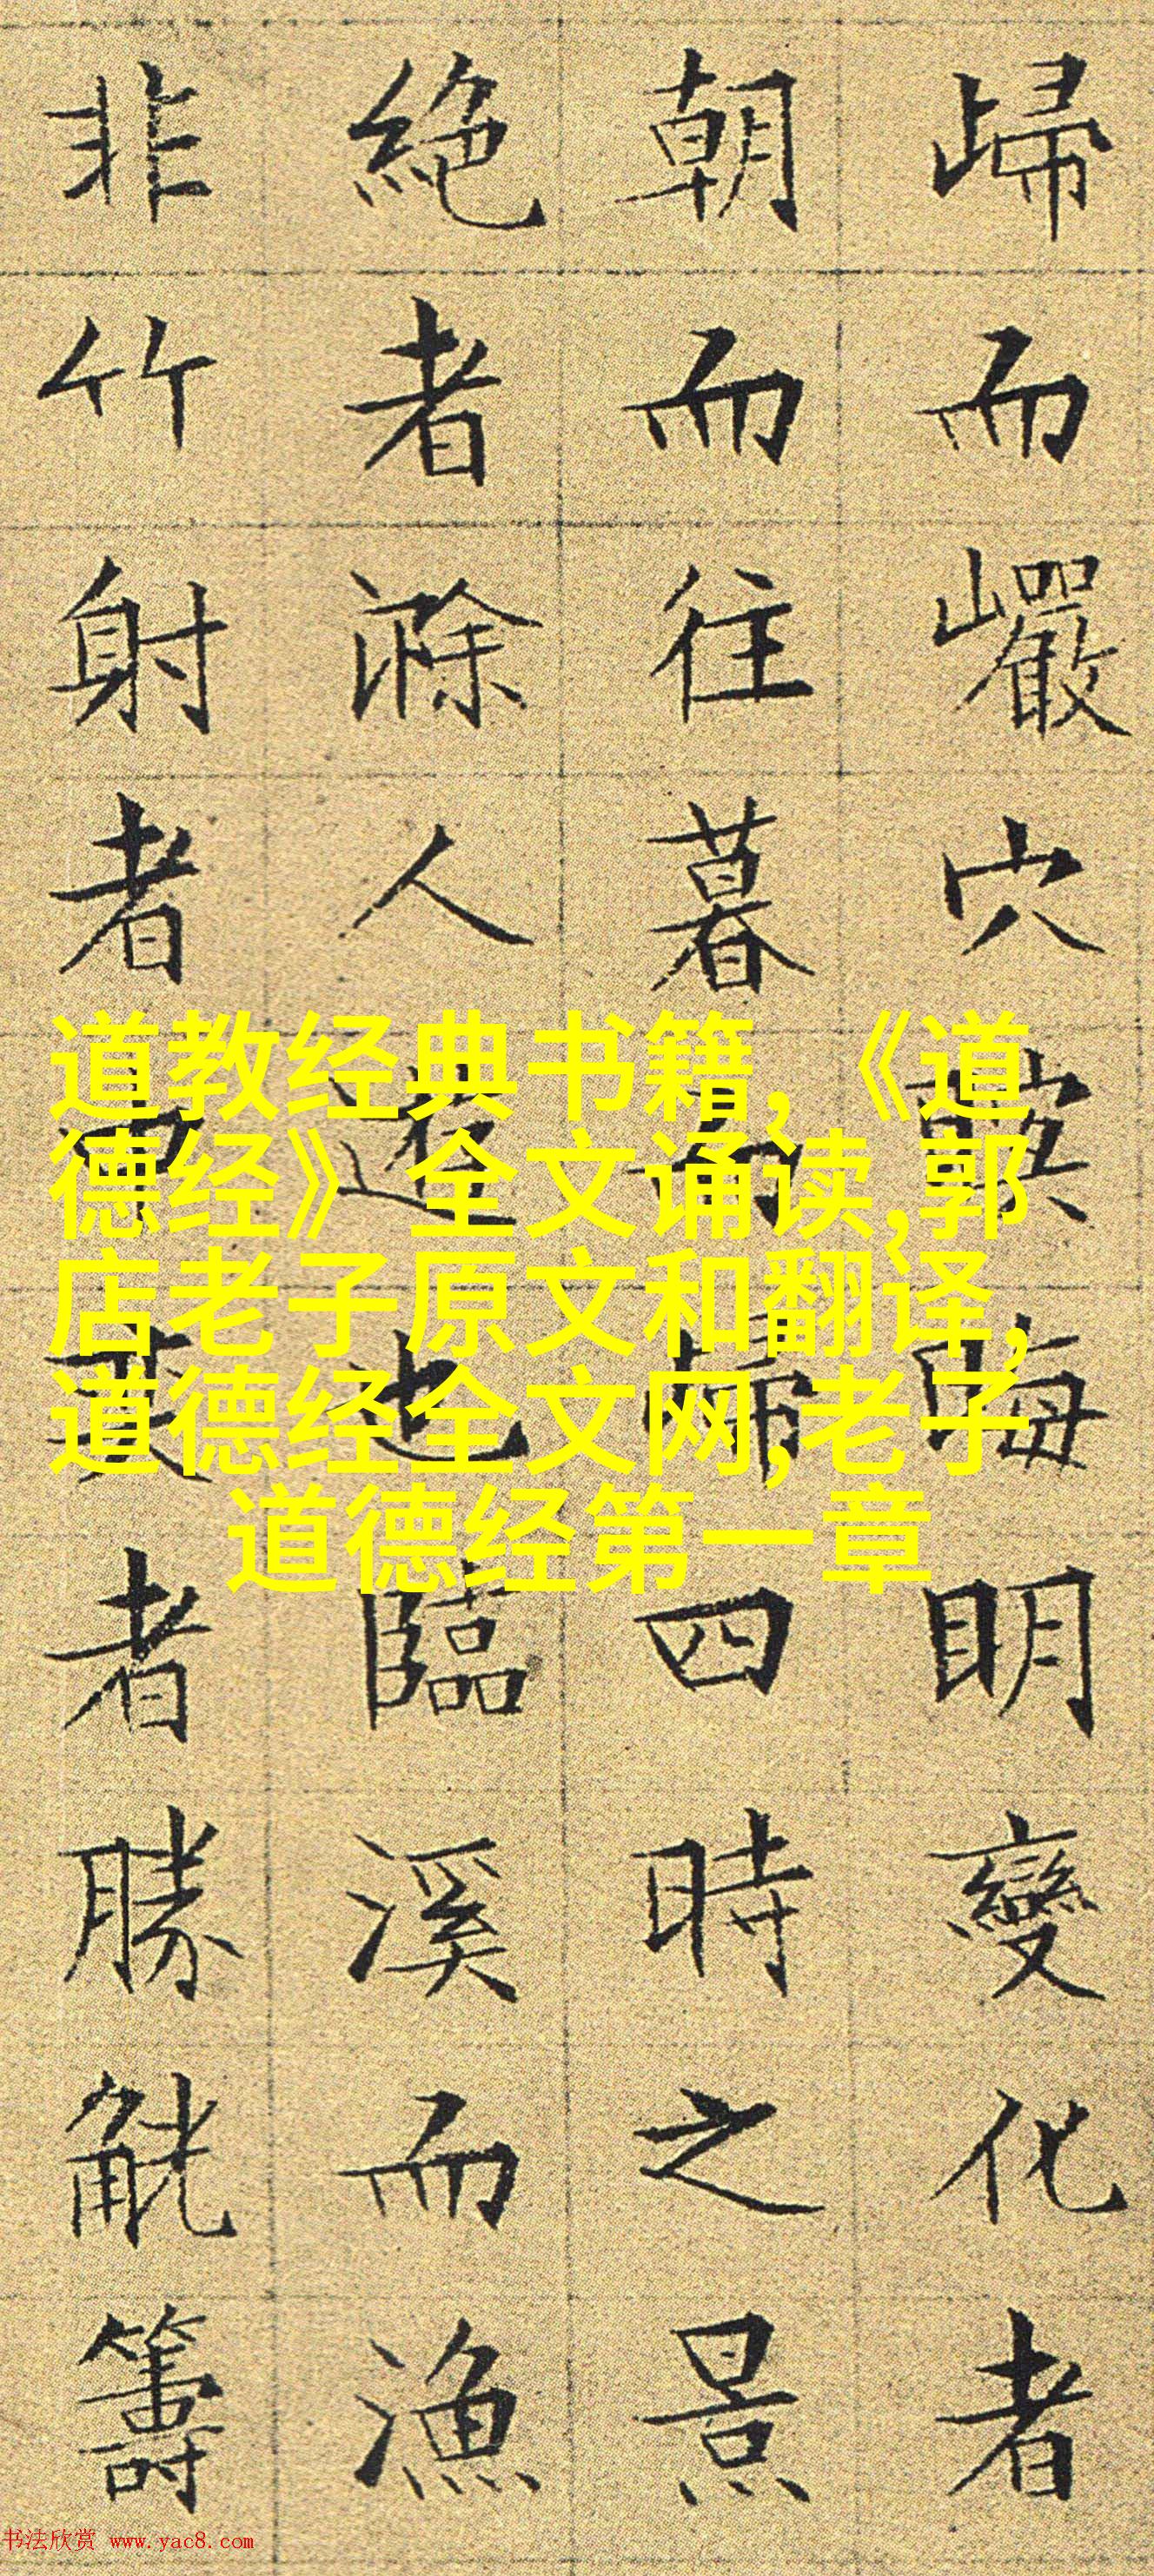 歸而巗穴暝晦明變化者
朝而往暮而歸四時之景
絕者滁人遊也臨溪而漁
非竹射者中奕者勝觥籌
道教经典书籍,《道
德经》全文诵读,郭
店老子原文和翻译,
道德经全文网,老子
道德经第一章
书法欣赏 www.yac8.com